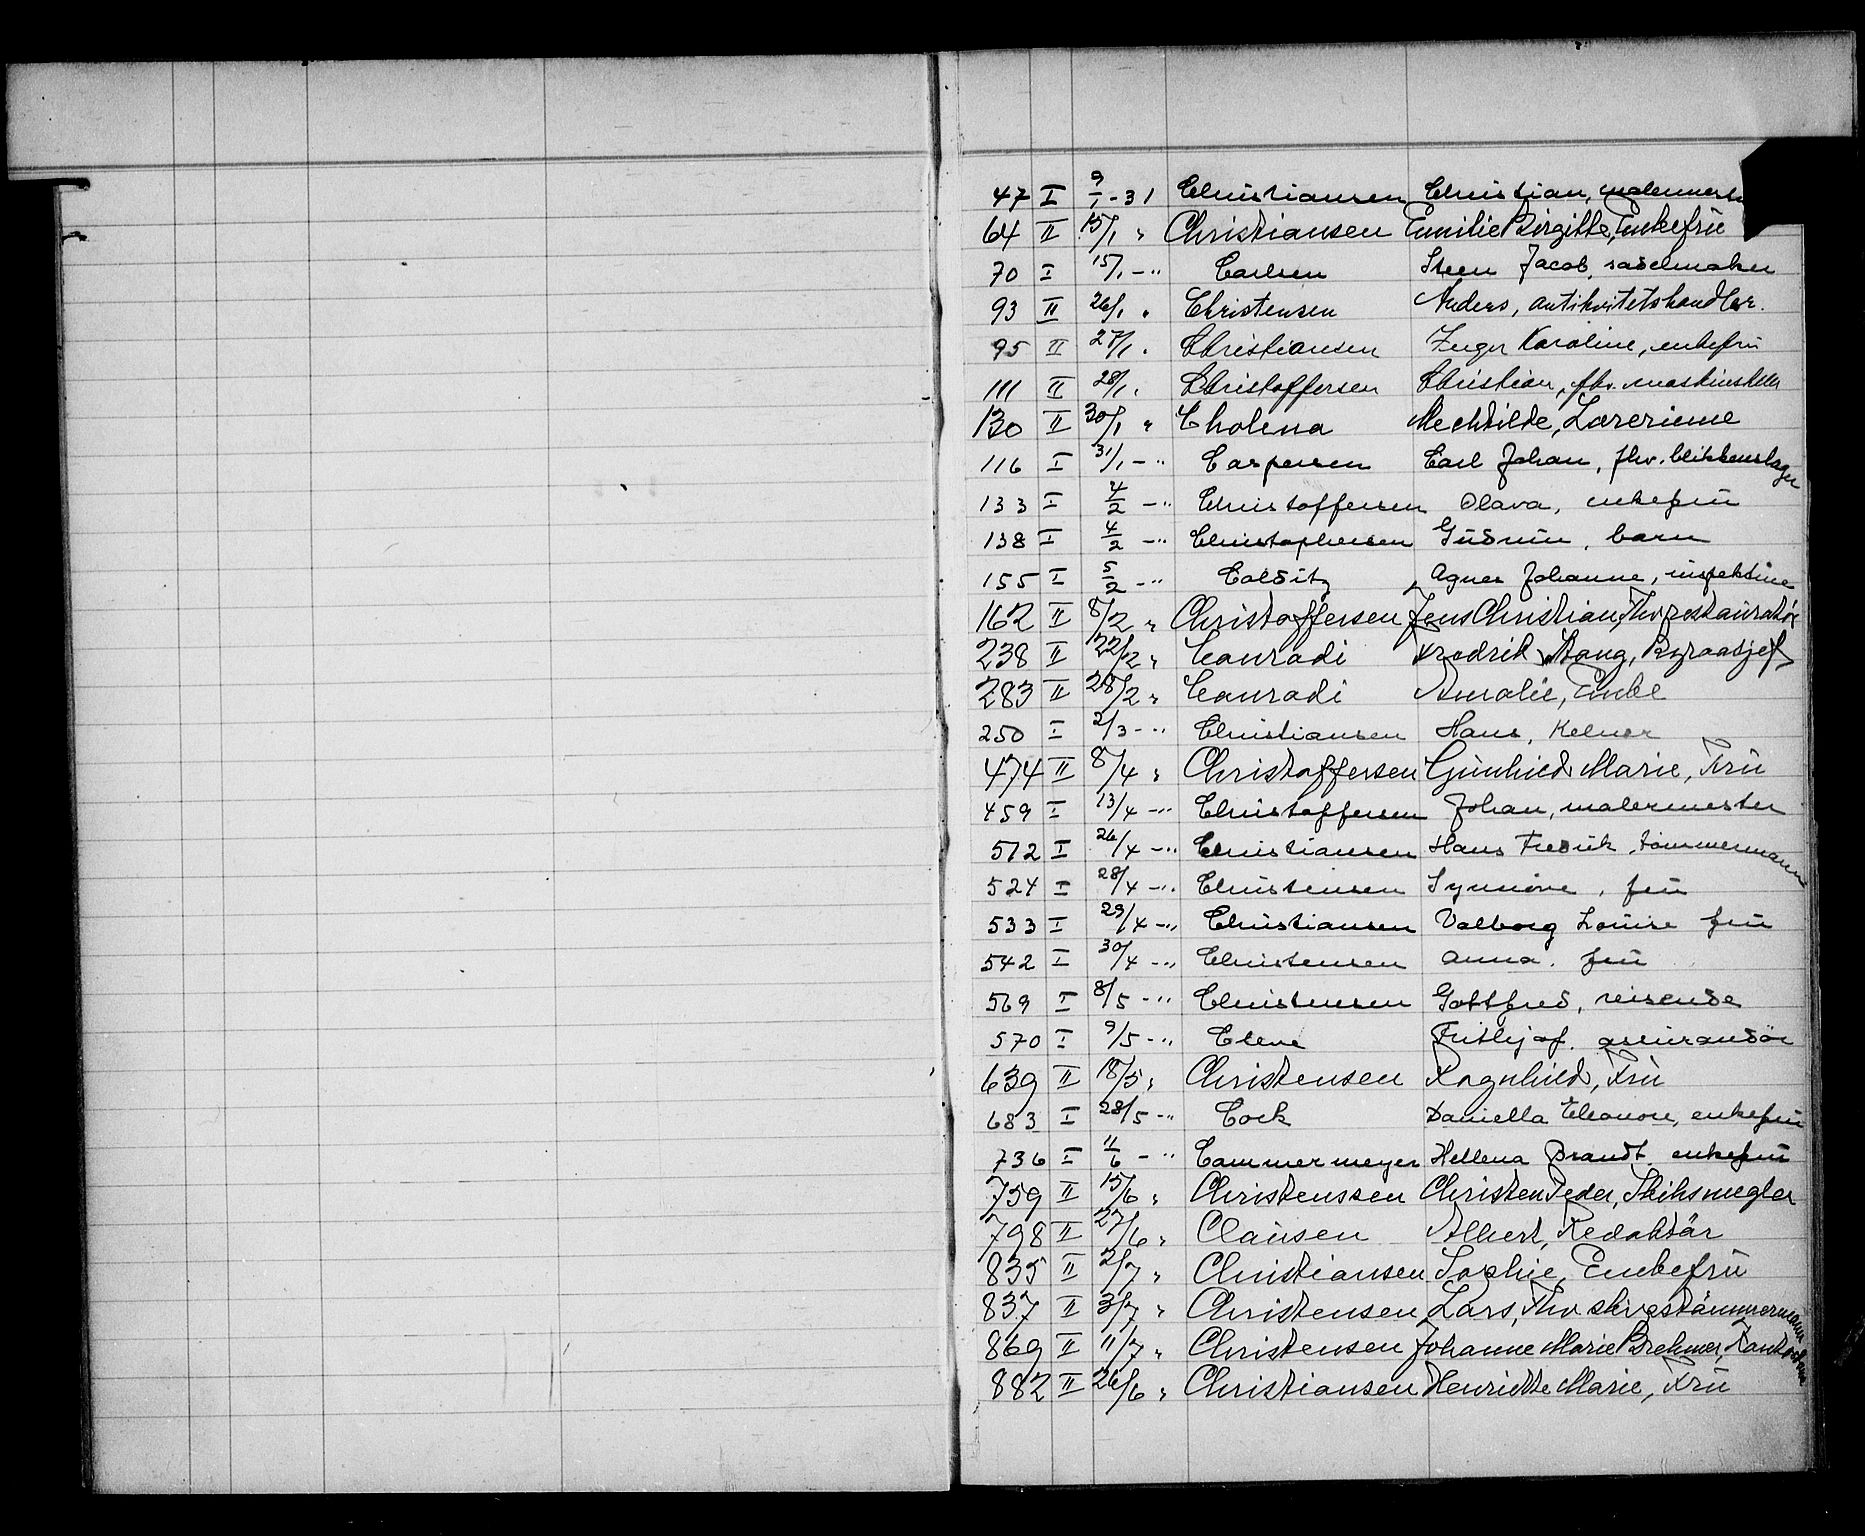 47 I 9/1-31 Christiansen Christian,
64 II 15/1 " Christiansen Emilie Birgitte, Enkefrü
70 I 15/1 -" Carlsen Steen Jacob, sadelmaker
93 II 26/1 " Christensen Anders, antikvitetshandler.
95 II 27/1 " Christiansen Inger Karoline, enkefrü
111 II 28/1 " Christoffersen Christian, fhv.
130 II 30/1 " Cholena Mechtilde, Lærerinne
116 I 31/1 -" Caspersen Carl Johan, fhv. blikkenslager
133 I 4/2 -" Christoffersen Olava, enkefrü
138 I 4/2 -" Christophersen Güdrün, barn
155 I 5/2 -" Colditz Agnes Johanne, inspektrine
162 II 8/2 " Christoffersen Jens Christian, Fhv restauratør
238 II 22/2 " Conradi Fredrik Stang, Byraasjef
283 II 28/2 " Conradi Amalie, Enke
250 I 2/3 -" Christiansen Hans, Kelner
474 II 8/4 " Christoffersen Günhild Marie, Frü
459 I 13/4 -" Christoffersen Johan, malermester
512 I 26/4 -" Christiansen Hans Fredrik, tømmermann
524 I 28/4 -" Christensen Synnøve, frü
533 I 29/4 -" Christiansen Valborg Louise frü
542 I 30/4 -" Christensen Anna, frü
569 I 8/5 -" Christensen Gottfred, reisende
570 I 9/5 -" Clene Frithjof, assürandør
639 II 18/5 " Christensen Ragnhild, Frü
683 I 28/5 -" Cock Daniella Eleonore, enkefrü
736 I 11/6 -" Cammermeyer Hellena Brandt, enkefrü
759 II 15/6 " Christenssen Christen Peder, Skibsmegler
798 II 27/6 " Claüsen Albert, Redaktør
835 II 2/7 " Christiansen Sophie, Enkefrü
837 II 3/7 " Christensen Lars, Fhv skipstømmermann
869 II 11/7 " Christensen Johanne Marie Brehmer,
882 II 26/6 " Christiansen Henriette Marie, Frü